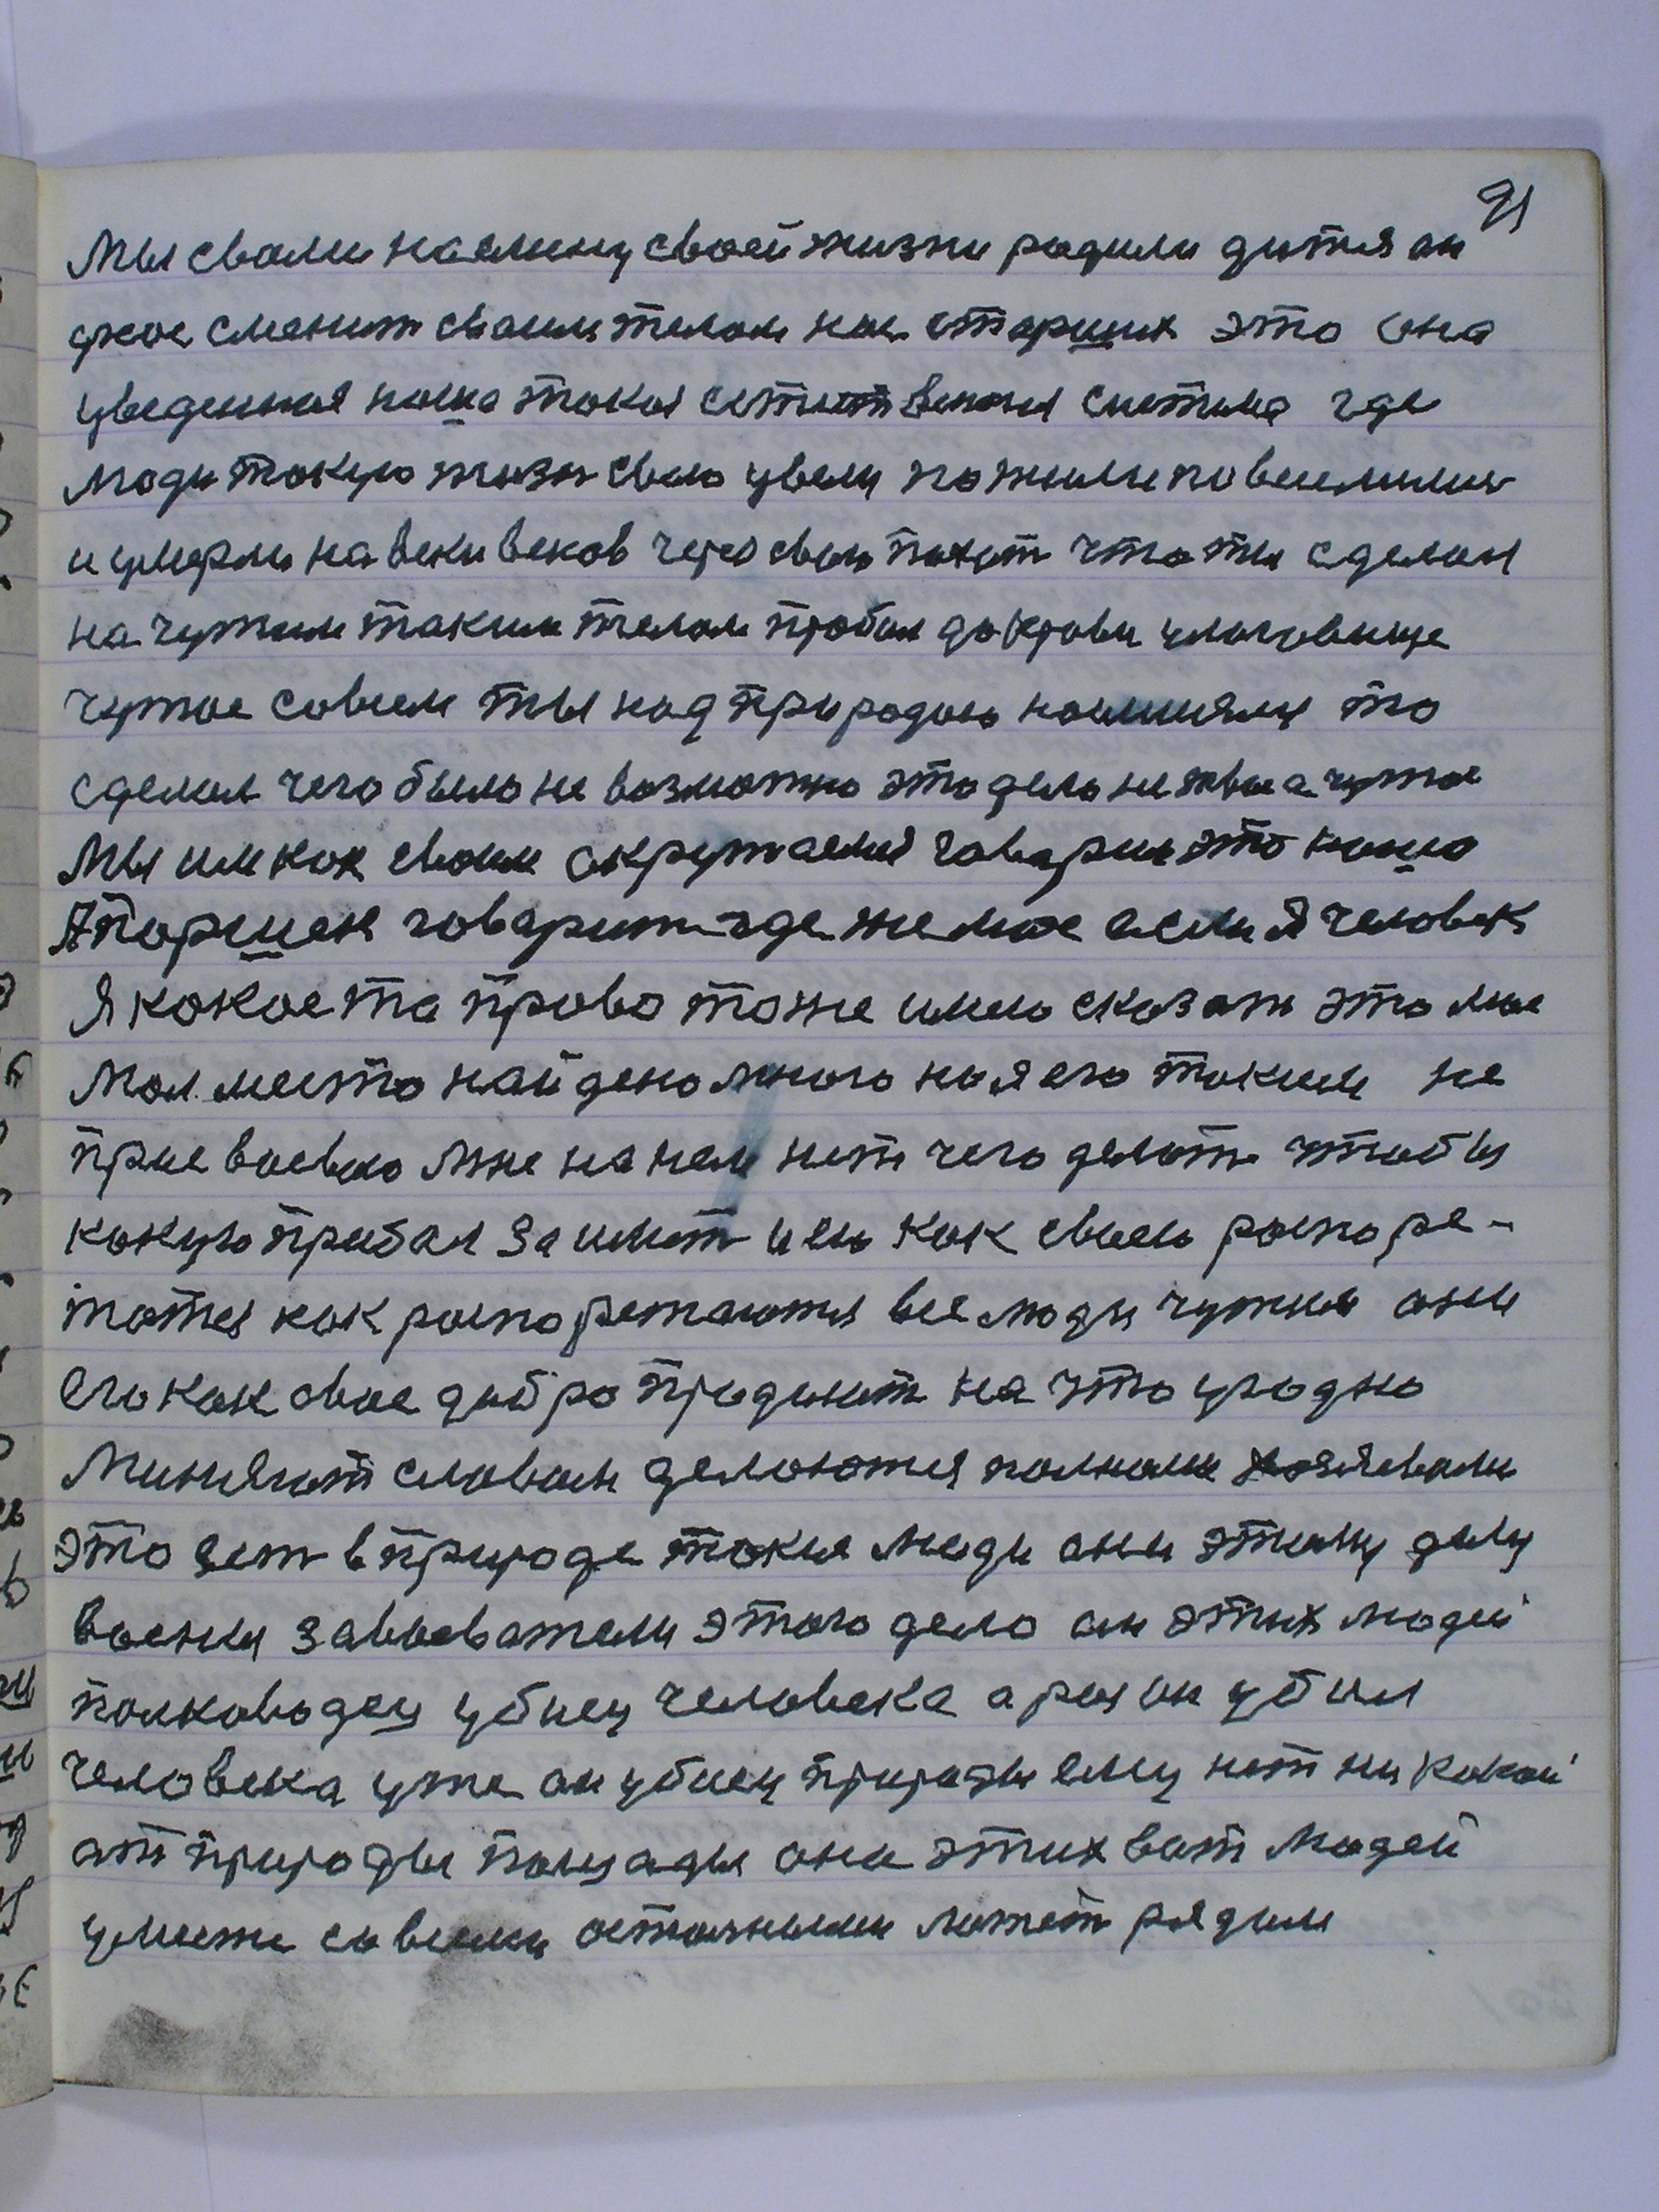 91
Мы свами на смену своей жизни родили дитя он
ужое сменит своим телом нас старших это она
уведенная наша такая систственая система где
люди такую жизн свою увели пожили повеселилис
и умерли на веки веков через свою похот что ты сделал
на чужим таким телом пробил до крови
чужое совсем ты над природаю насмиялся то
сделал чего было не возможно это дело не твое а чужое
Мы им как своим окружаемся говорим это наша
А поршек говорит где же мое если я человек
Я какое та право тоже имею сказат это мое
Мое место найдено много но я его таким не
присвоеваю мне на нем нет чего делать чтобы
какую прибал за имет и ею как своею распоре-
жатся как распорежаются все люди чужим они
его как свое добро продают на что угодно
Миняют словом делаются полными хозяевами
это ест в природе такие люди они этому делу
воены завоеватели этого дела он этих людей
полководец убиец человека а раз он убил
человека уже он убиец природы ему нет ни какой
от природы пощады она этих вот людей
умести со всеми остачными ложет рядим